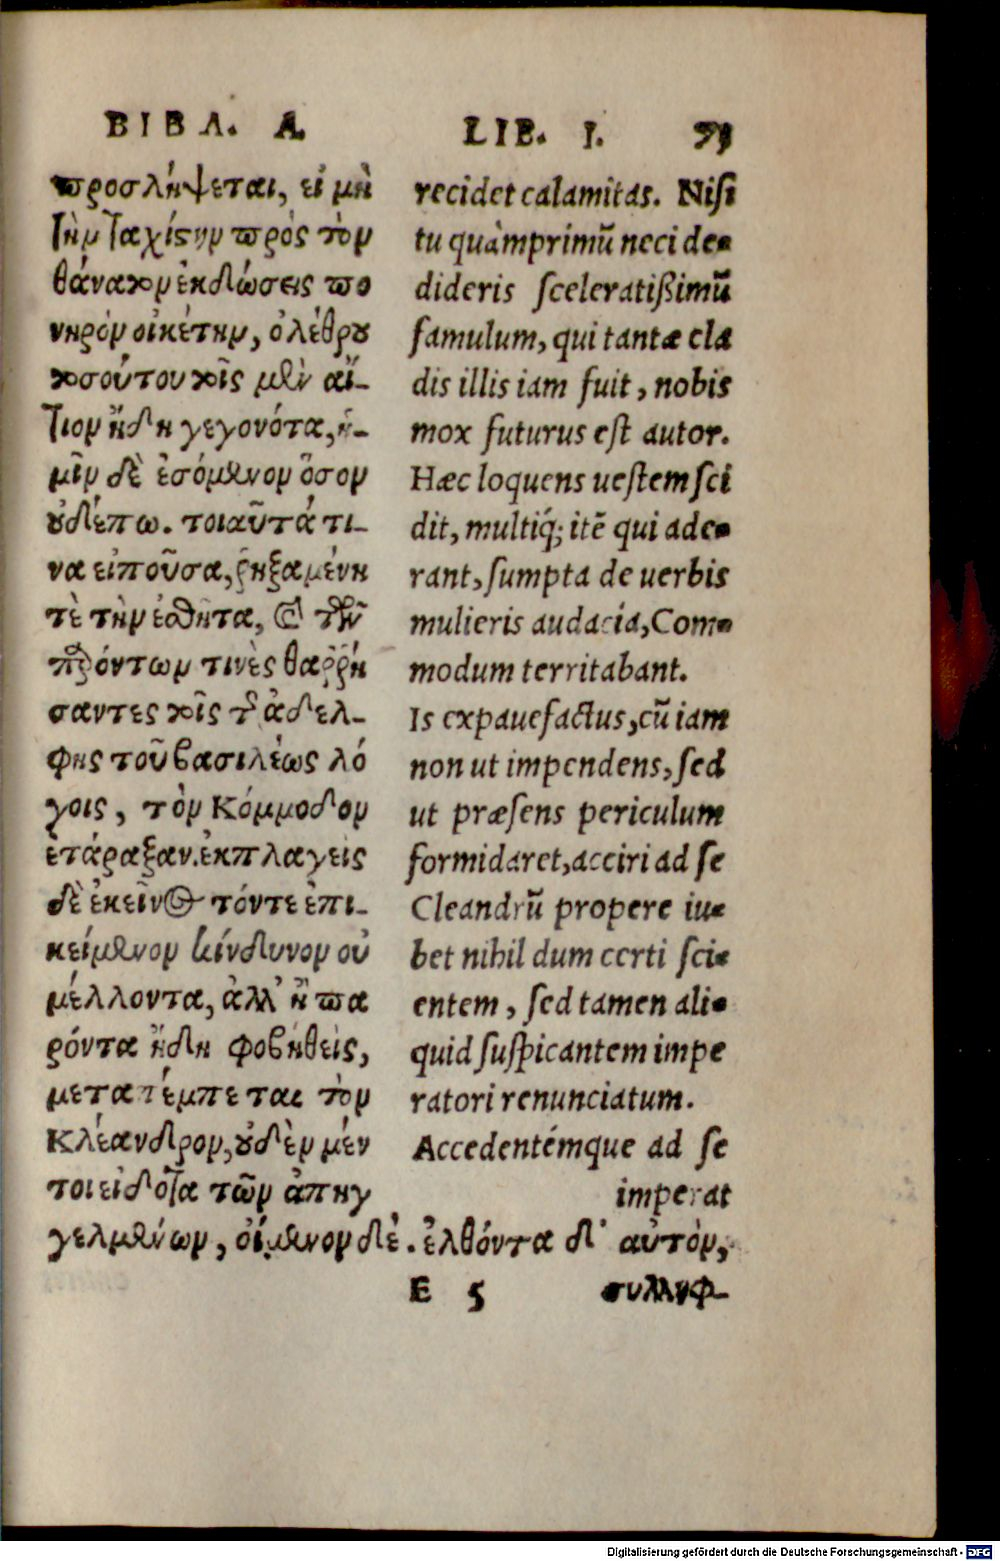 ΒΙΒΛ. Α.
προσλήψεται, εἰ μὴ
τὴν ταχίστην πρὸς τὸν
θάνατον ἐκδώσεις πο
νηρὸν οἰκέτην, ὀλέθρου
τοσούτου τοῖς μὲν αἴ-
τιον ἤδη γεγονότα, ἡ-
μῖν δὲ ἐσόμενον ὅσον
οὐδέπω. τοιαῦτά τι-
να εἰποῦσα, ῥηξαμένη
τὲ τὴν ἐσθῆτα, καὶ τῶν
παρόντων τινὲς θαῤῥή
σαντες τοῖς τῆς ἀδελ-
φῆς τοῦ βασιλέως λό
γοις, τὸν Κόμμοδον
ἐτάραξαν. ἐκπλαγεὶς
δὲ ἐκεῖνος τόντε ἐπι-
κείμενον κίνδυνον οὐ
μέλλοντα, ἀλλ' ἢ πα
ρόντα ἤδη φοβηθεὶς,
μεταπέμπεται τὸν
Κλέανδρον, οὐδὲν μέν
τοι εἰδότα τῶν ἀπηγ
γελμένων, οἰόμενον δέ. ἐλθόντα δ' αὐτὸν,
LIB. I. 73
recidet calamitas. Nisi
tu quàmprimũ neci de-
dideris sceleratißimũ
famulum, qui tantæ cla
dis illis iam fuit, nobis
mox futurus est autor.
Hæc loquens uestem sci
dit, multiq́; itẽ qui ade-
rant, sumpta de uerbis
mulieris audacia, Com-
modum territabant.
Is expauefactus, cũ iam
non ut impendens, sed
ut præsens periculum
formidaret, acciri ad se
Cleandrũ propere iu-
bet nihil dum certi sci-
entem, sed tamen ali-
quid suspicantem impe
ratori renunciatum.
Accedentémque ad se
imperat
E 5 συλληφ-
Digitalisierung gefördert durch die Deutsche Forschungsgemeinschaft - DFG